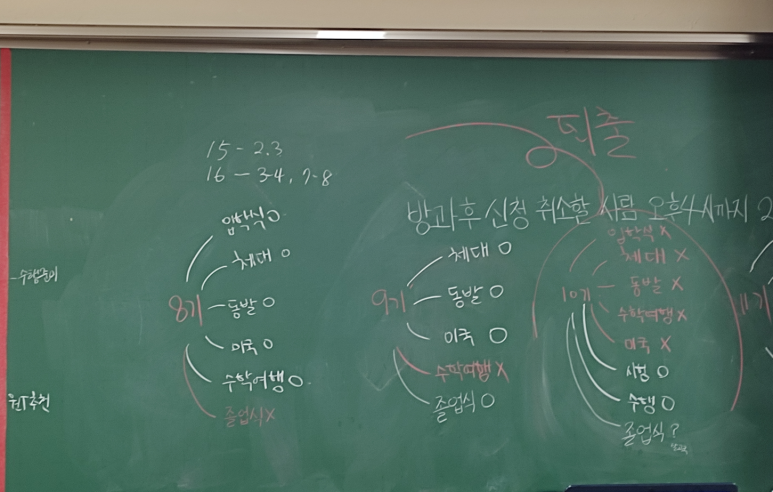 퇴출
15 - 2.3
16 - 3-4, 7-8
방과후 신청 취소할 사람 오후 4시까지 2
8기
입학식 O
체대 O
동발 O
미국 O
수학여행 O
졸업식 X
9기
체대 O
동발 O
미국 O
수학여행 X
졸업식 O
10기
입학식 X
체대 X
동발 X
수학여행 X
미국 X
시험 O
수행 O
졸업식 ?
11기